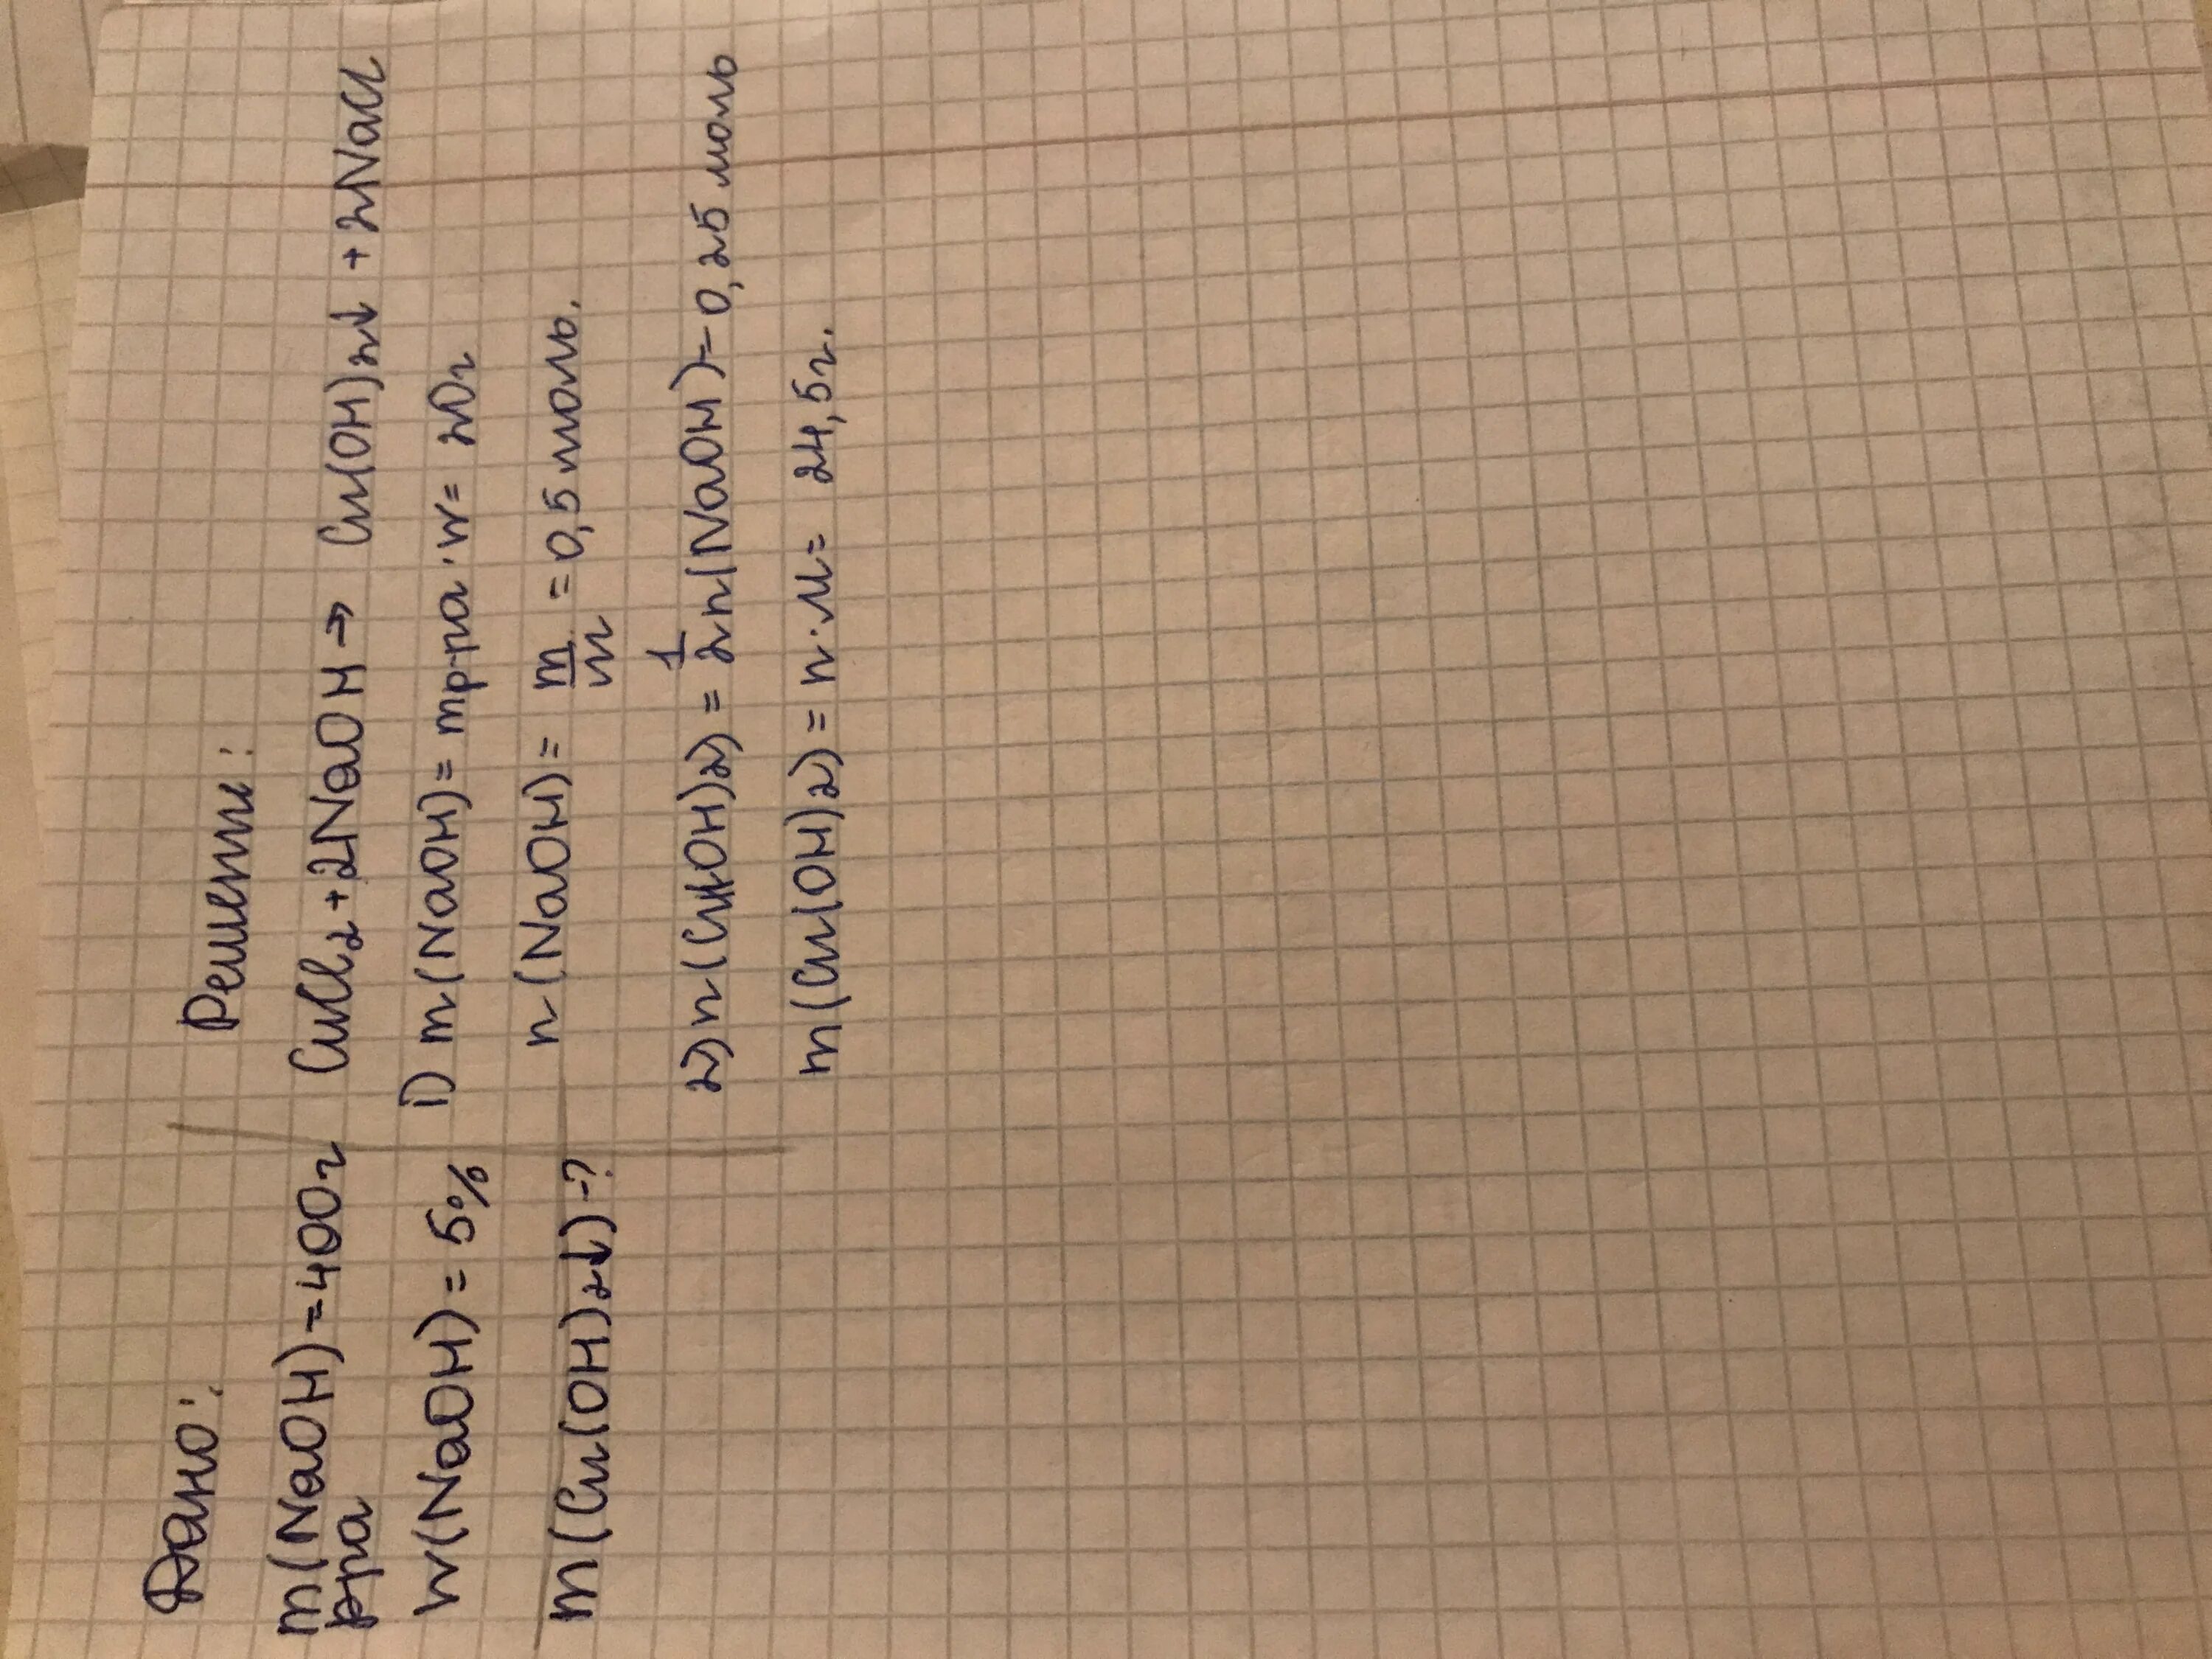 Дано:
m(NaOH)=400г
р-ра
w(NaOH)=5%
m(Cu(OH)2↓)-?
Решение:
CuCl2+2NaOH→ Cu(OH)2↓ +2NaCl
1) m(NaOH)= mр-ра·w= 20г
n(NaOH)= m/M =0,5 моль.
2) n(Cu(OH)2)= 1/2 n(NaOH)=0,25 моль
m(Cu(OH)2)=n·M= 24,5г.